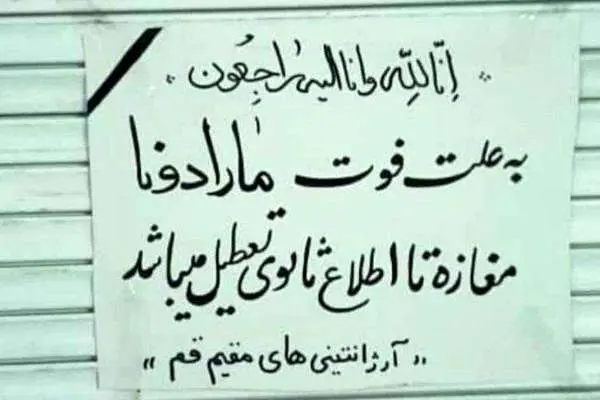 انا لله وانا الیه راجعون
به علت فوت مارادونا
مغازه تا اطلاع ثانوی تعطیل میباشد
,, آرژانتینی های مقیم قم ,,